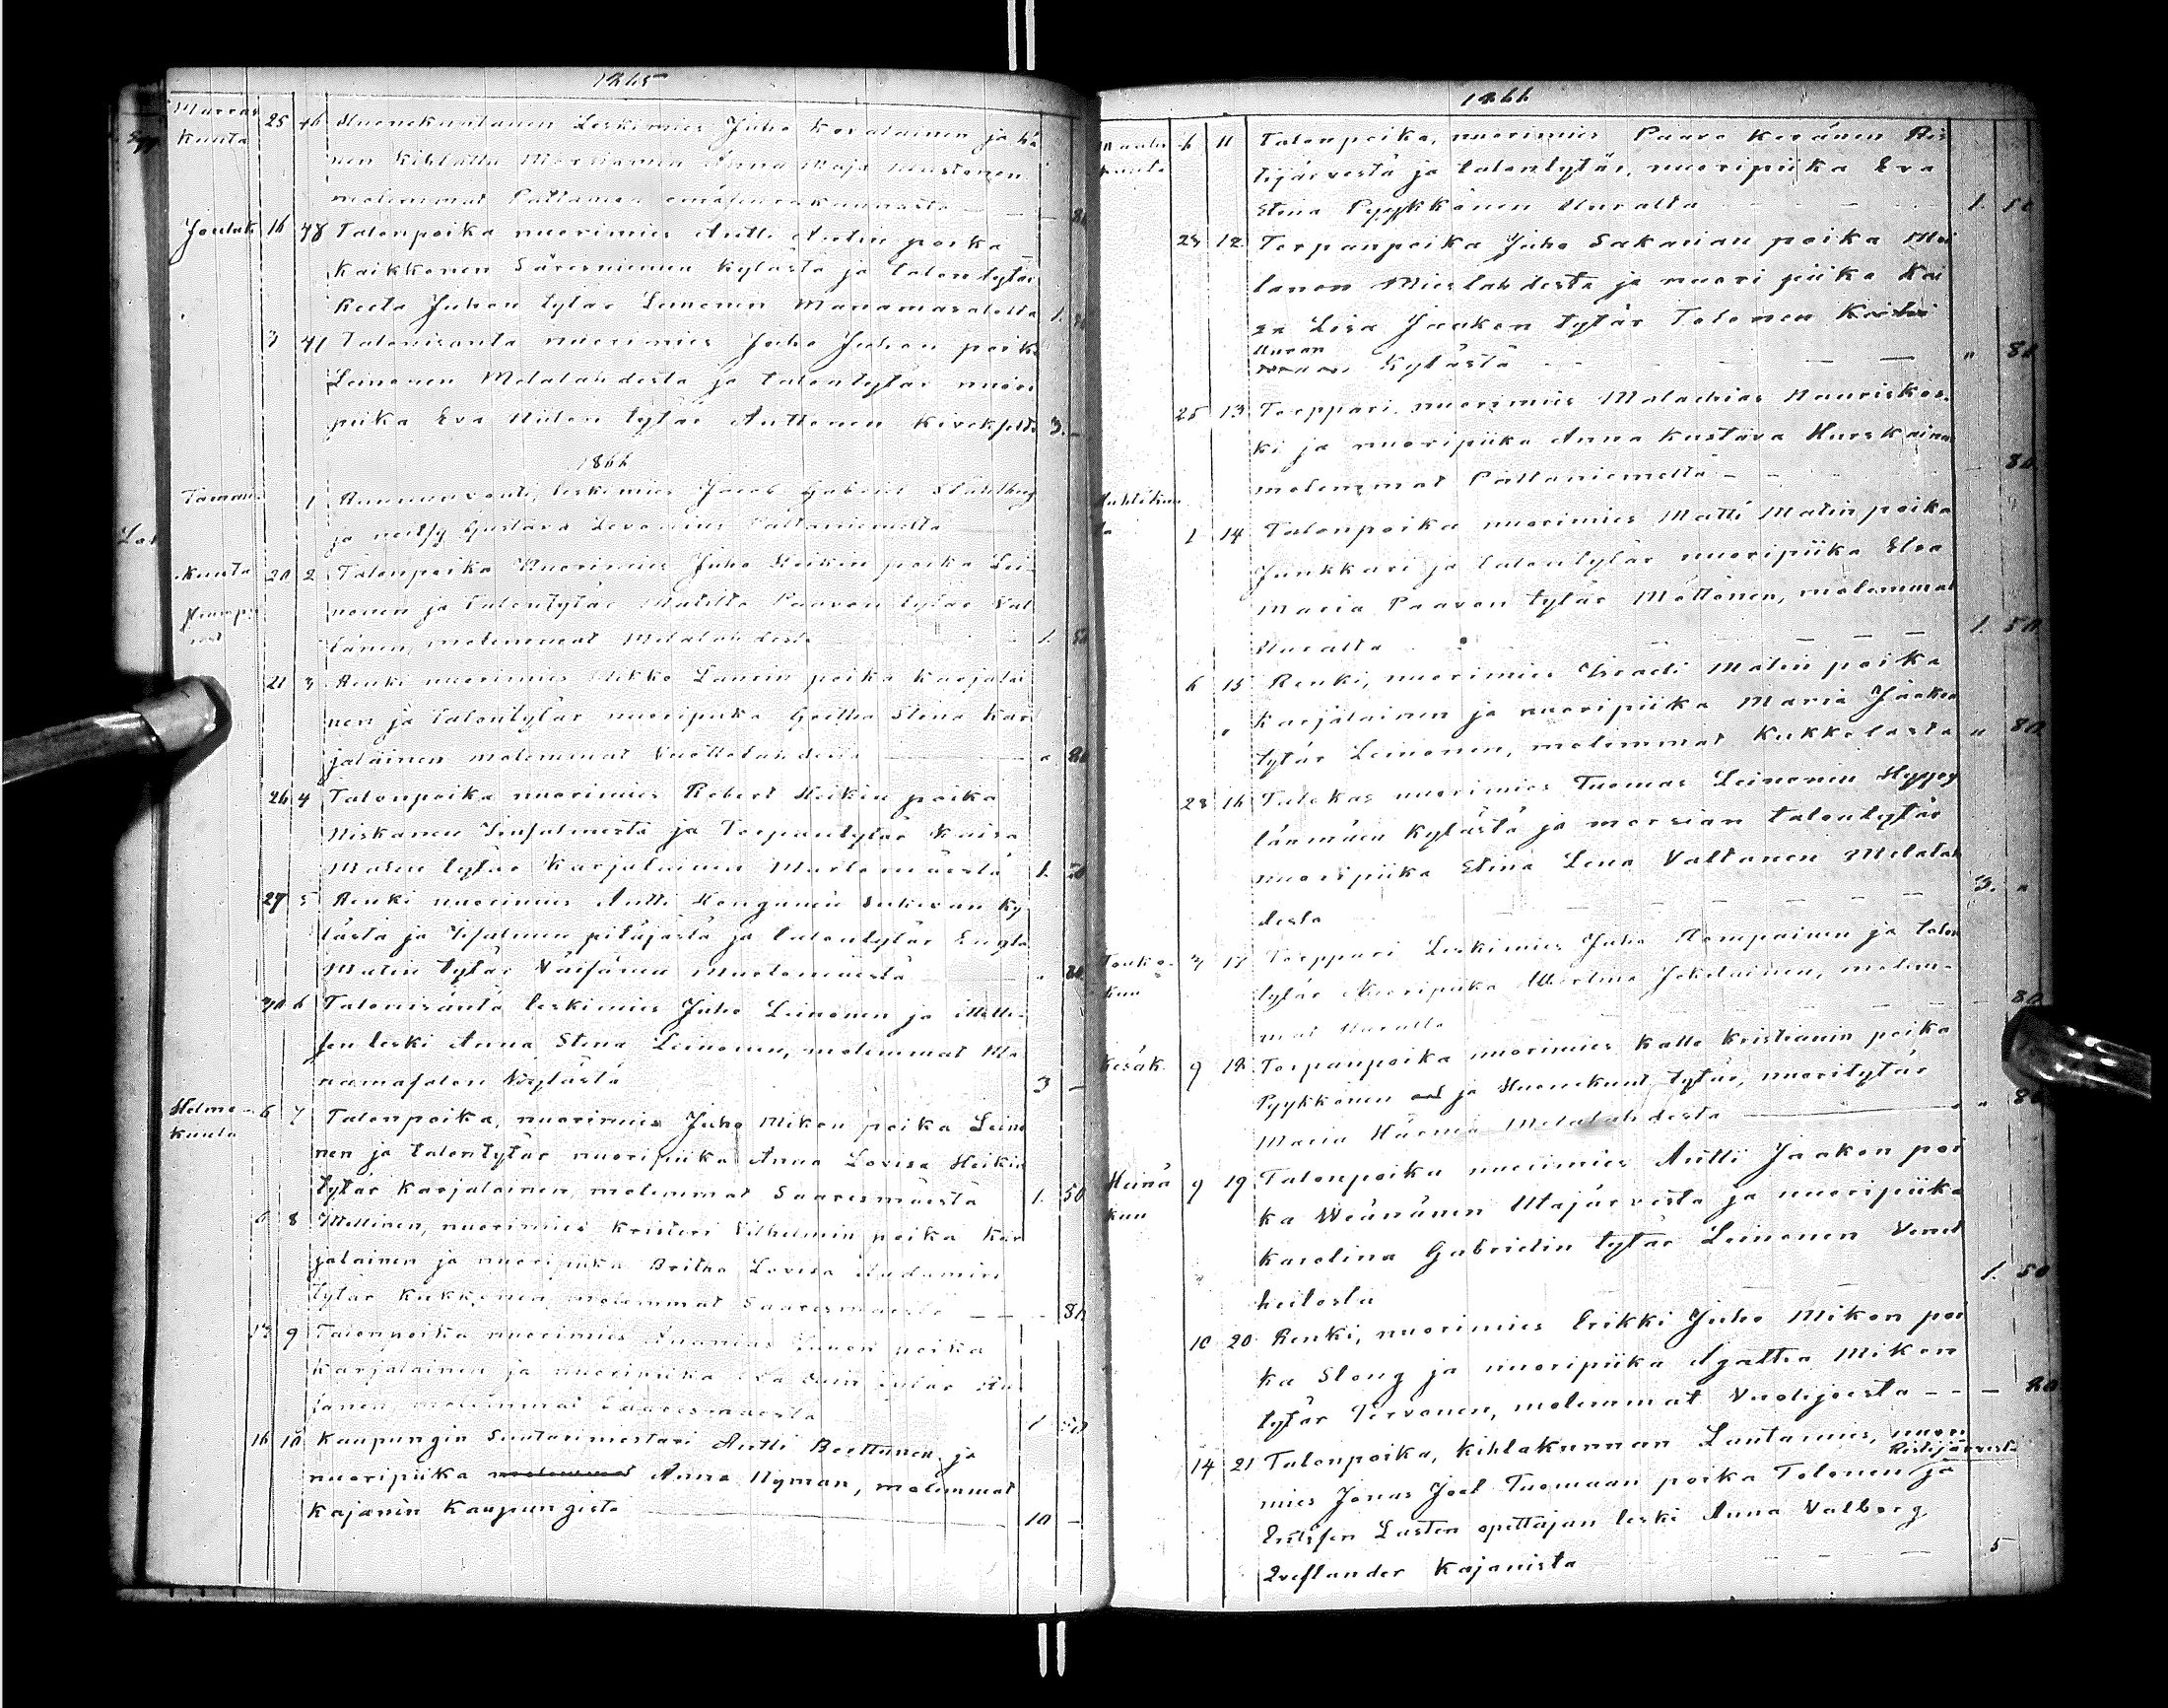 1865
Marras 25 46 Huonekuntanen Leskimies Juho Kovalainen ja hä
kuuta nen kihlattu Morsiamen Anna Maja Mustonen
molemmat Paltamon emäseurakunnasta — 80
Jouluk 16 48 Talonpoika nuorimies Antti Antin poika
Kaikkonen Säresniemen kylästä ja talontytär
Reeta Juhon tytär Leinonen Manamansalolta 1. 50
3 47 Talonisäntä nuorimies Juho Juhon poika
Leinonen Melalahdesta ja talontytär nuori
piika Eva tytär Anttonen 3. —
1866
Tammi 1 leskimies Jacob Gabriel Ståhlberg
ja neitsy Gustava Levonius Paltaniemeltä
kuuta 20 2 Talonpoika Nuorimies Juho Heikin poika Lei
nonen ja talontytär Matilta Paavon tytär Val
tanen, molemmat Melalahdesta 1. 50
21 3 Renki nuorimies Mikko Laurin poika Karjalai
nen ja talontytär nuoripiika Greetha Stina Kar
jalainen molemmat Vuottolahdesta " 80
26 4 Talonpoika nuorimies Robert Heikin poika
Niskanen Iisalmesta ja Torpantytär Kaisa
Matin tytär Karjalainen Murtomäestä 1. 50
27 5 Renki nuorimies Antti Kongunen Sukevan ky
lästä ja Iisalmen pitäjästä ja talontytär Engla
Matin tytär Väisänen Murtomäestä " 80
30 6 Talonisäntä leskimies Juho Leinonen ja itselli
sen leski Anna Stina Leinonen, molemmat Ma
namasalon kylästä 3 —
Helmi 6 7 Talonpoika, nuorimies Juho Mikon poika Leino
kuuta nen ja talontytär nuoripiika Anna Lovisa Heikin
tytär Karjalainen, molemmat Saaresmäestä 1. 50
6 8 Itsellinen, nuorimies Kristeri Vilhelmin poika Kar
jalainen ja nuoripiika Britha Lovisa Aadamin
tytär Kukkonen molemmat Saaresmäestä — — 80
13 9 Talonpoika nuorimies Ananias poika
Karjalainen ja nuoripiika Eva tytär
molemmat Saaresmäestä 1 50
16 10 Kaupungin Suutarimestari Antti Beettunen ja
nuoripiika Anna Nyman, molemmat
Kajanin Kaupungista 10 —
1866
Maalis 6 11 Talonpoika, nuorimies Paavo Keränen Ris
kuuta tijärvestä ja talontytär, nuoripiika Eva
Stina Pyykkönen Uuralta 1. 50
24 12 Torpanpoika Juho Sakarian poika Moi
lanen Mieslahdesta ja nuori piika Kai
sa Lisa Jaakon tytär Tolonen
Uuran kylästä " 80
25 13 Torppari nuorimies Malachias Nauriskos
ki ja nuoripiika Anna Kustava Hurskainen
molemmat Paltaniemeltä — 80
Huhtikuu
ta 1 14 Talonpoika nuorimies Matti Matin poika
Junkkari ja talontytär nuoripiika Elsa
Maria Paavon tytär Möttönen, molemmat
Uuralta 1. 50
6 15 Renki, nuorimies Israeli Matin poika
Karjalainen ja nuoripiika Maria Jaakon
tytär Leinonen, molemmat Kukkolasta " 80
28 16 Tulokas nuorimies Tuomas Leinonen Hyppy
länmäen kylästä ja morsian talontytär
nuoripiika Stina Lena Valtanen Melalah
desta 3. "
Touko- 3 17 Torppari Leskimies Juho Rompainen ja talon
kuu tytär Nuoripiika Jokelainen, molem-
mat Uuralta — 80
Kesäk 9 18 Torpanpoika nuorimies Kalle Kristianin poika
Pyykkönen ja Huonekunt tytär, nuoritytär
Maria Härmä Melalahdesta " 80
Heinä 9 19 Talonpoika nuorimies Antti Jaakon poi
kuu ka Väänänen Utajärvestä ja nuoripiika
Karolina Gabrielin tytär Leinonen Venet
heitosta 1. 50
10 20 Renki, nuorimies Erikki Juho Mikon poi
ka Slong ja nuoripiika Agatha Mikon
tytär Tervonen, molemmat Vuolijoesta — — — 80
14 21 Talonpoika, kihlakunnan Lautamies, nuori
Ristijärvestä
mies Jonas Joel Tuomaan poika Tolonen ja
Lasten opettajan leski Anna Valborg
Kajanista 5